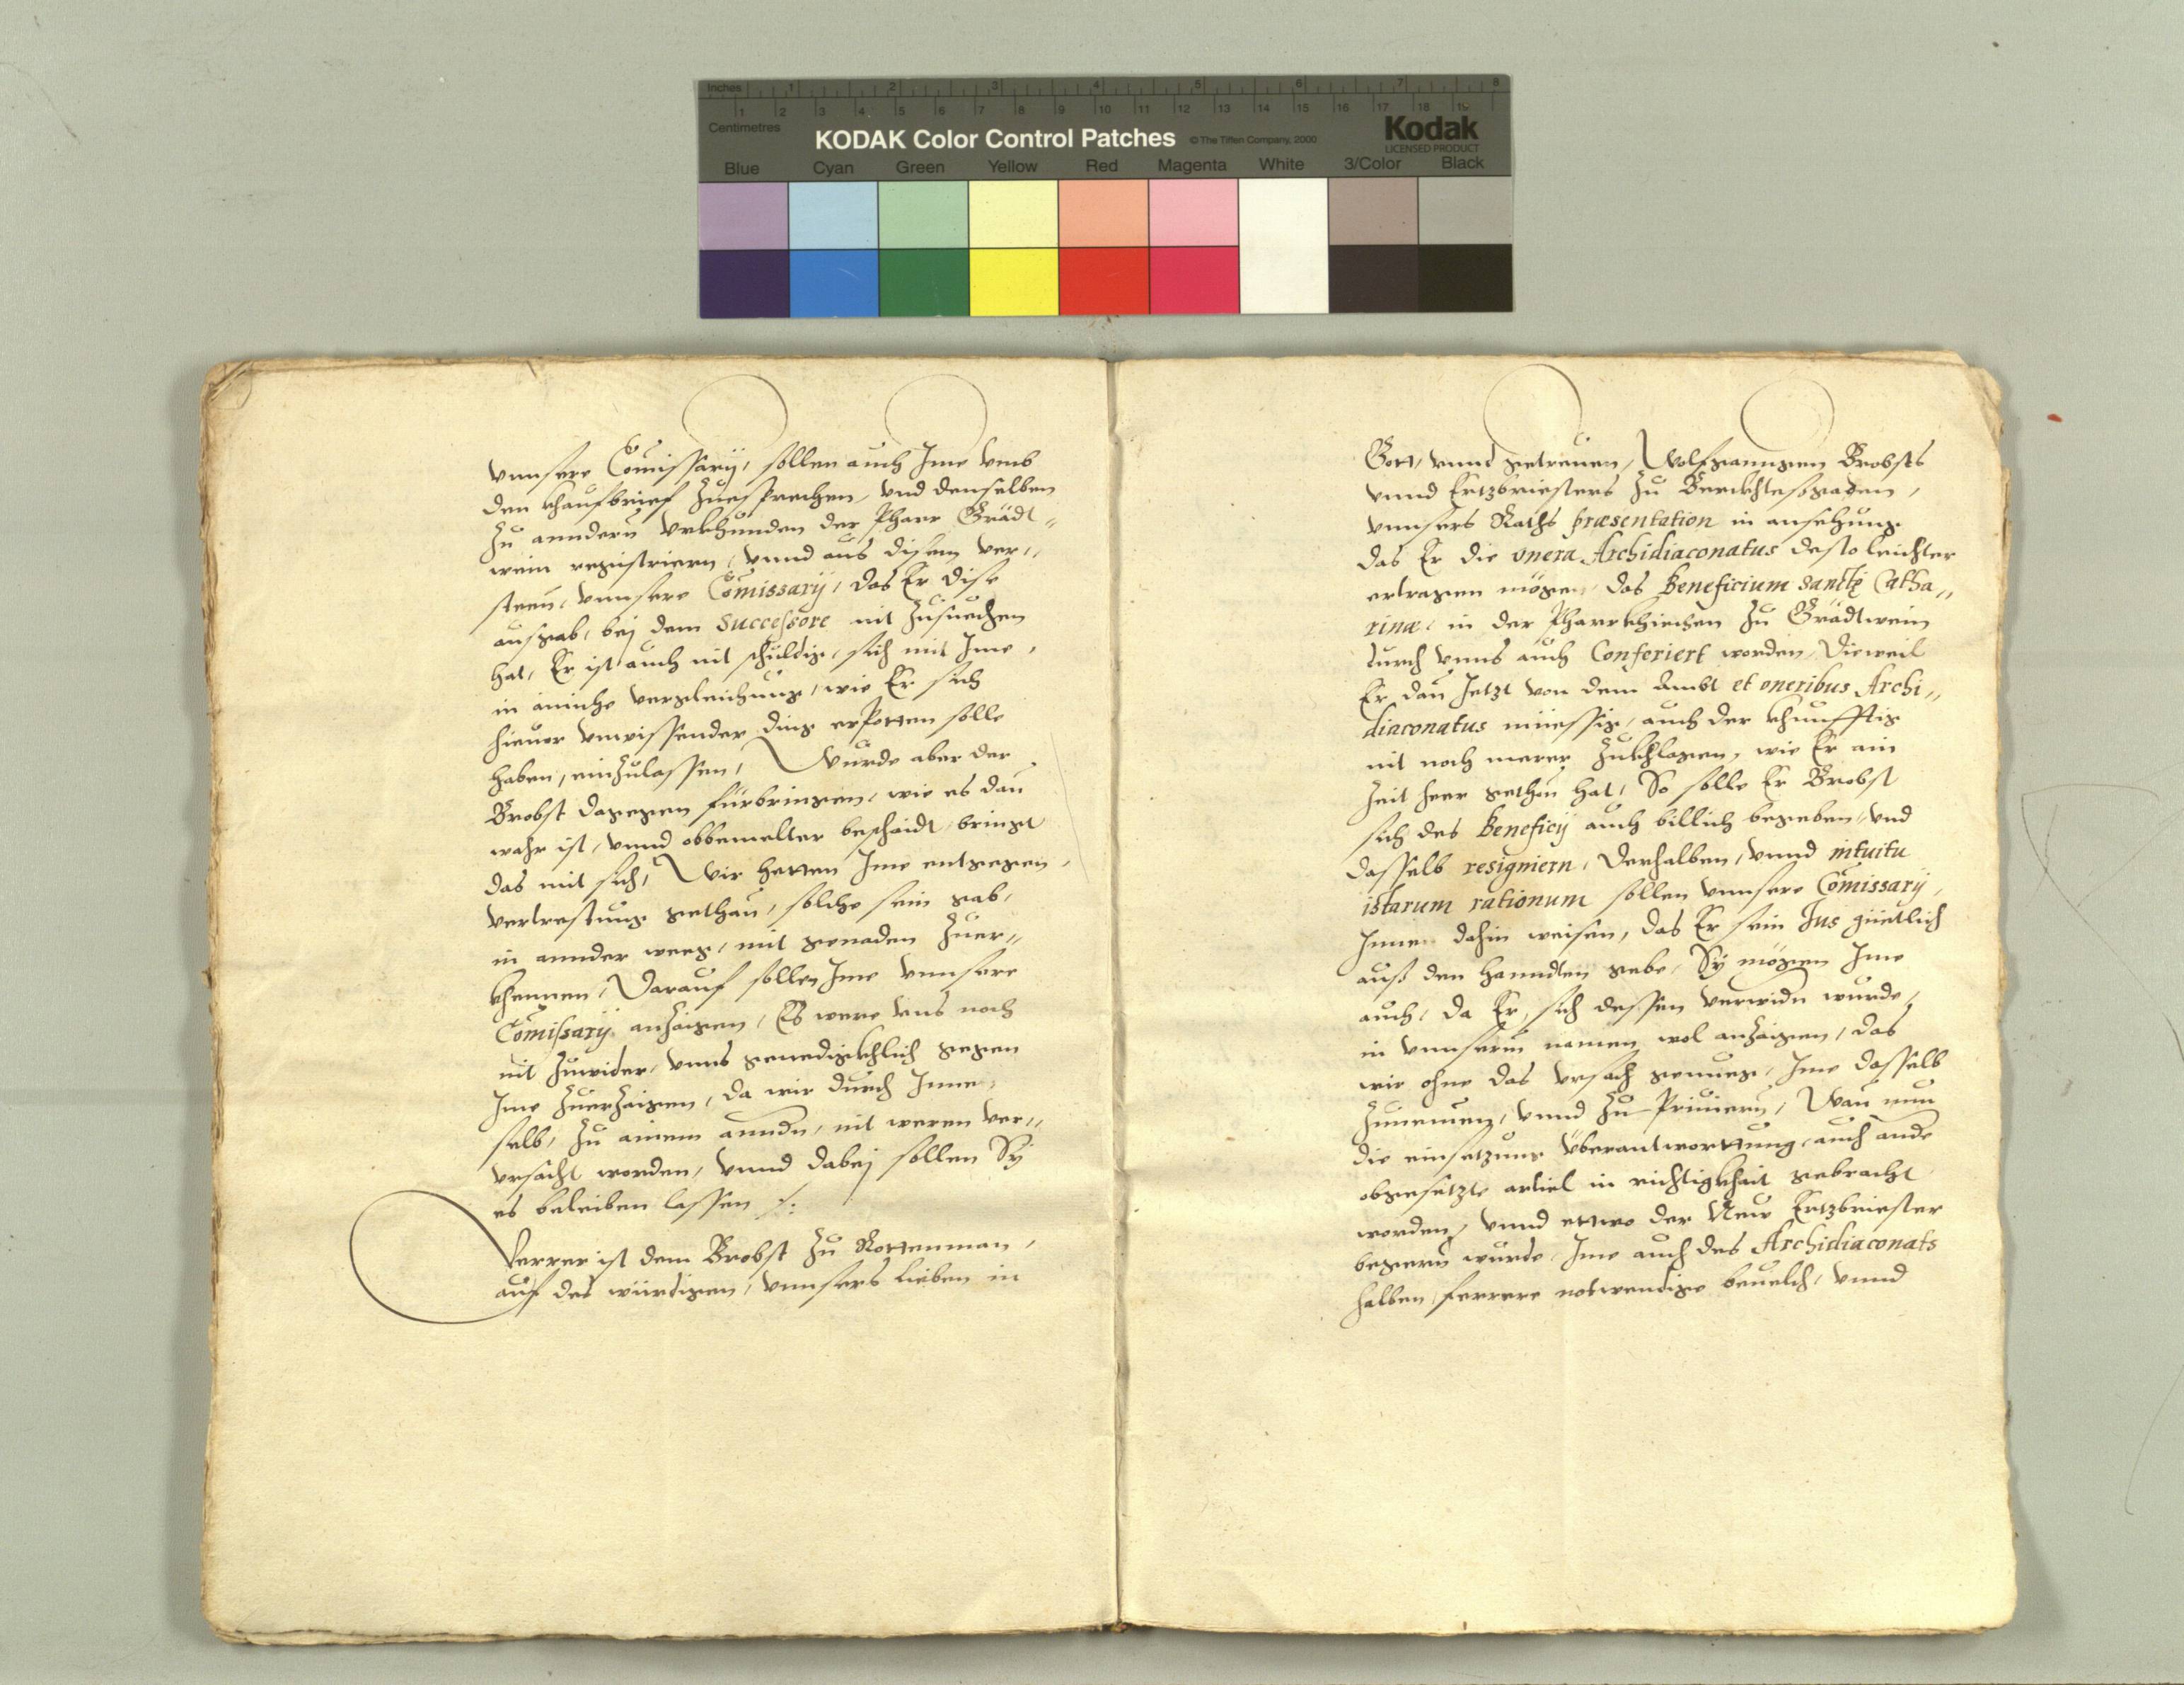 Inches 1 2 3 4 5 6 7 8
1 2 3 4 5 6 7 8 9 10 11 12 13 14 15 16 17 18 19
Centimetres
KODAK Color Control Patches © The Tiffen Company, 2000 Kodak
LICENSED PRODUCT
Blue Cyan Green Yellow Red Magenta White 3/Color Black
vnnsere Comissarij, sollen auch Jme vmb
den khaufbrief Zuesprechen, vnd denselben
Zu anndern vrkhunden der Pharr Grädt„
wein registriern, vnnd aus disem ver„
steen, vnnsere Comissarij, das Er dise
ausgab, bej dem Successore nit Zusuechen
hat, Er ist auch nit schuldig, sich mit Jme,
in ainiche vergleichung, wie Er sich
hieuor vnwissender ding erpotten solle
haben, einzulassen, Wurde aber der
Brobst dagegen fürbringen, wie es dan
wahr ist, vnnd obbemelter beschaidt bringt
das mit sich, Wir hetten Jme entgegen
vertrestung gethan, solche sein gab,
in annder weeg, mit genaden Zuer„
khennen, Darauf sollen Jme vnnsere
Comissarij anzaigen, Es were vns noch
nit Zuwider, vnns genedigkhlich gegen
Jme Zuerzaigen, da wir durch Jnne
selb, Zu ainem anndn, nit weren ver„
vrsacht worden, vnnd dabej sollen Sy
es beleiben lassen ⁒
Ferrer ist dem Brobst Zu Rottenman,
auf des würdigen, vnnsers lieben in
Gott, vnnd getreuen, Wolfganngen Brobsts
vnnd Ertzbriesters Zu Berchteßgaden,
vnnsers Raths præsentation in ansehung
das Er die onera Archidiaconatus desto leichter
ertragen mögen, das Beneficium Sanctę Catha„
rinæ, in der Pharrkhirchen Zu Grädtwein
durch vnns auch Conferiert worden, Dieweil
Er dan Jetzt von dem Ambt et oneribus Archi„
diaconatus müessig, auch der khunfftig
nit noch merer Zukhlagen, wie Er ain
Zeit heer gethon hat, So solle Er Brobst
sich des Beneficij auch billich begeben, vnd
dasselb resigniern, Derhalben, vnnd intuitu
istarum rationum sollen vnnsere Comissarij,
Jnnen dahin weisen, das Er sein Jus güetlich
auß den Hanndten gebe, Sy mögen Jme
auch, da Er, sich dessen verwidn wurde,
in vnnserm namen wol anzaigen, das
wir ohne das vrsach genueg, Jme dasselb
Zunemen, vnnd Zu Priuiern, Wan nun
die einsatzung überantworttung, auch ande
obgesetzte articl in richtigkhait gebracht
worden, vnnd ettwo der New Ertzbriester
begern wurde, Jme auch des Archidiaconats
halben, ferrere notwendige beuelch, vnnd